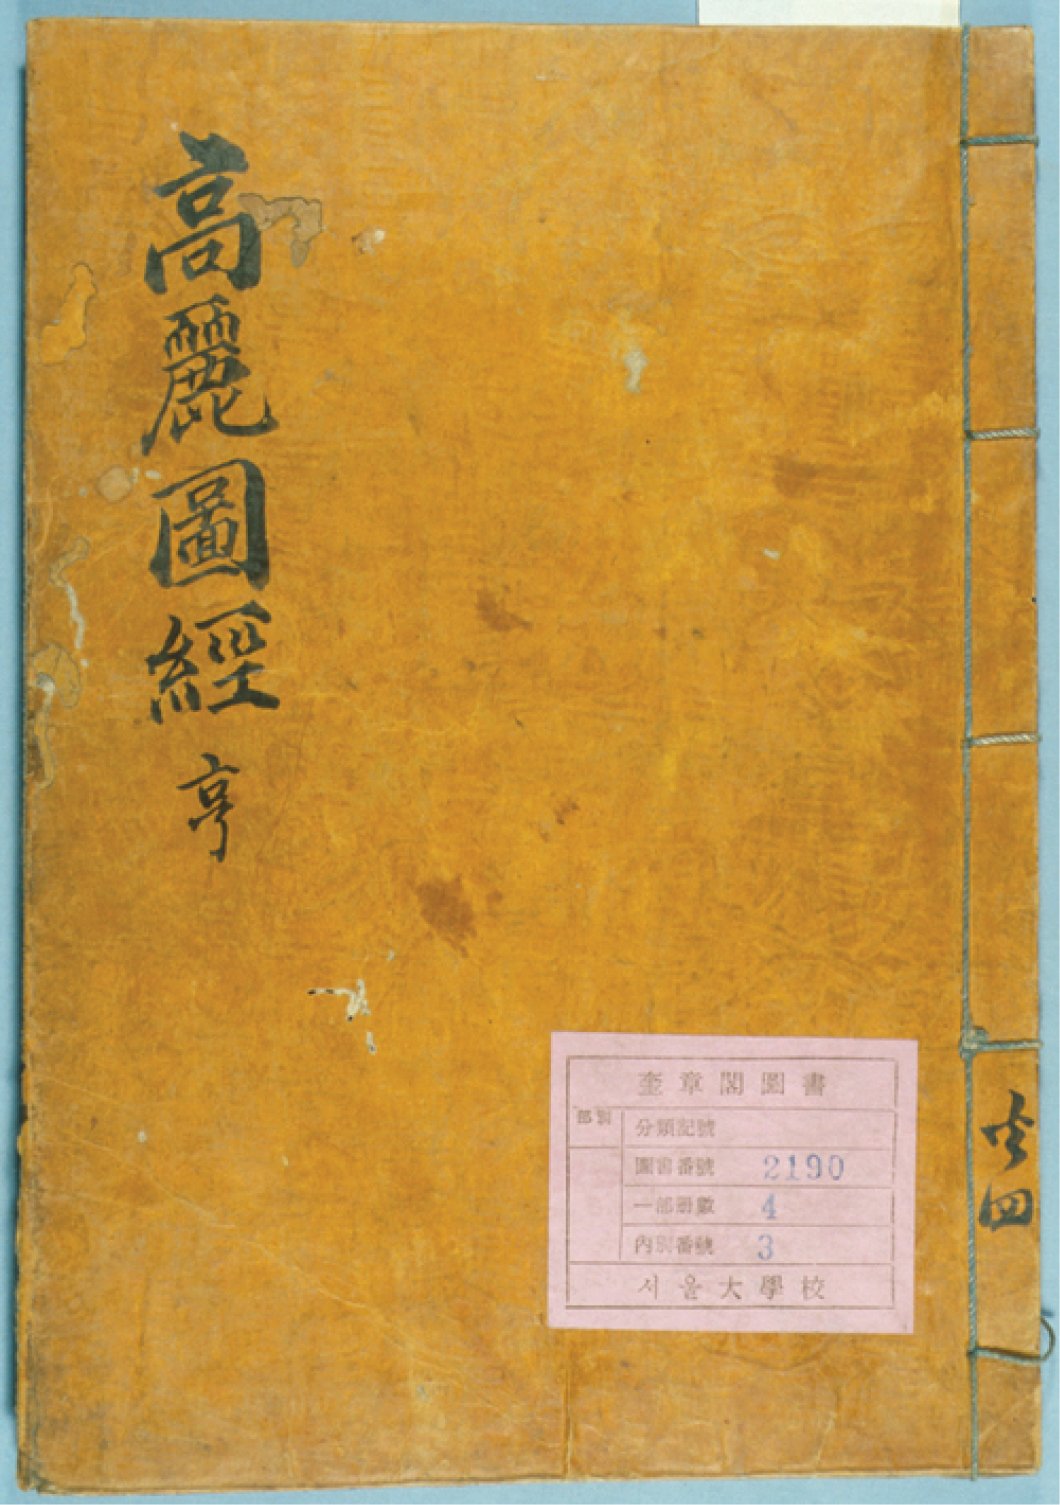 高麗圖經 亨
共四
奎章閣圖書
部別
分類記號
圖書番號 2190
一部冊數 4
內別番號 3
서울大學校